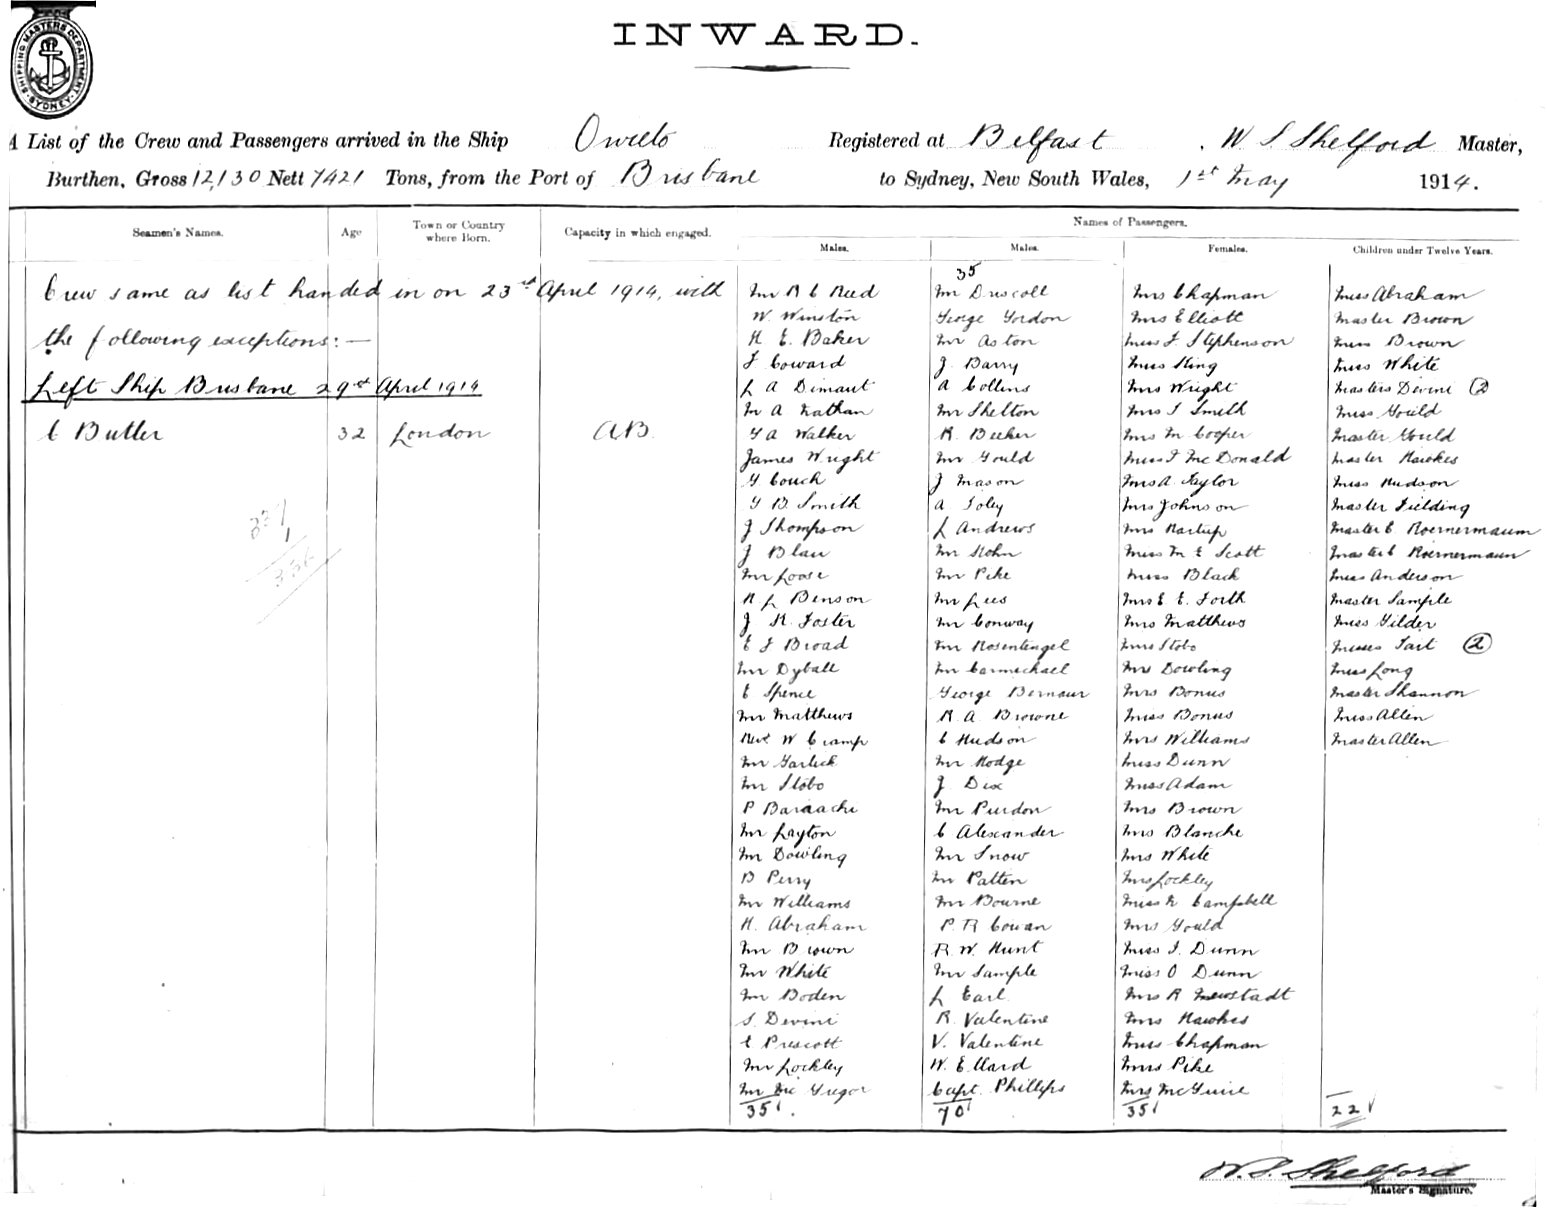 SHIPPING MASTERS DEPARTMENT
SYDNEY
INWARD.
A List of the Crew and Passengers arrived in the Ship Orvieto Registered at Belfast, W. S. Shelford Master,
Burthen, Gross 12,130 Nett 7421 Tons, from the Port of Brisbane to Sydney, New South Wales, 1st May 1914.
Seamen's Names. Age Town or Country where Born. Capacity in which engaged. Names of Passengers.
Males. Males. Females. Children under Twelve Years.
Crew same as list handed in on 23rd April 1914, with
the following exceptions:—
Left Ship Brisbane 29th April 1914
C Butler 32 London AB.
Mr R C Reed
W Winston
H E Baker
F Coward
L A Dimant
M A Nathan
G A Walker
James Wright
G Couch
G B Smith
J Thompson
J Blau
Mr Loose
H L Benson
J H Foster
E J Broad
Mr Dyball
C Spence
Mr Matthews
Revd W Cramp
Mr Garlick
Mr Stobo
P Baraachi
Mr Layton
Mr Dowling
B Perry
Mr Williams
H. Abraham
Mr Brown
Mr White
Mr Boden
S. Devini
E Prescott
Mr Lockley
Mr McGregor
35
35
Mr Driscoll
George Gordon
Mr Aston
J. Barry
A Collins
Mr Shelton
R. Becker
Mr Gould
J Mason
A Foley
L Andrews
Mr Kohn
Mr Pike
Mr Lees
Mr Conway
Mr Rosentengel
Mr Carmichael
George Bernaur
R. A. Browne
C Hudson
Mr Hodge
J. Dix
Mr Purdon
C Alexander
Mr Snow
Mr Patten
Mr Bourne
P. R Cowan
R. W. Hunt
Mr Sample
L Earl
R. Valentine
V. Valentine
W. Ellard
Capt. Phillips
70
Mrs Chapman
Mrs Elliott
Miss F. Stephenson
Miss King
Mrs Wright
Mrs S Smith
Mrs M Cooper
Miss F McDonald
Mrs A. Taylor
Mrs Johnson
Mrs Hartup
Miss M E Scott
Miss Black
Mrs E E. Forth
Mrs Matthews
Mrs Stobo
Mrs Dowling
Mrs Bonus
Miss Bonus
Mrs Williams
Miss Dunn
Miss Adam
Mrs Brown
Mrs Blanche
Mrs White
Mrs Lockley
Miss N Campbell
Mrs Gould
Miss I. Dunn
Miss O Dunn
Mrs R Newstadt
Mrs Hawkes
Miss Chapman
Mrs Pike
Mrs McGuire
35
Miss Abraham
Master Brown
Miss Brown
Miss White
Masters Devini (2)
Miss Gould
Master Gould
Master Hawkes
Miss Hudson
Master Fielding
Master C. Roernermaum
Master C Roernermaum
Miss Anderson
Master Sample
Miss Gilder
Misses Tait (2)
Miss Long
Master Shannon
Miss Allen
Master Allen
22
W. S. Shelford
Master's Signature.